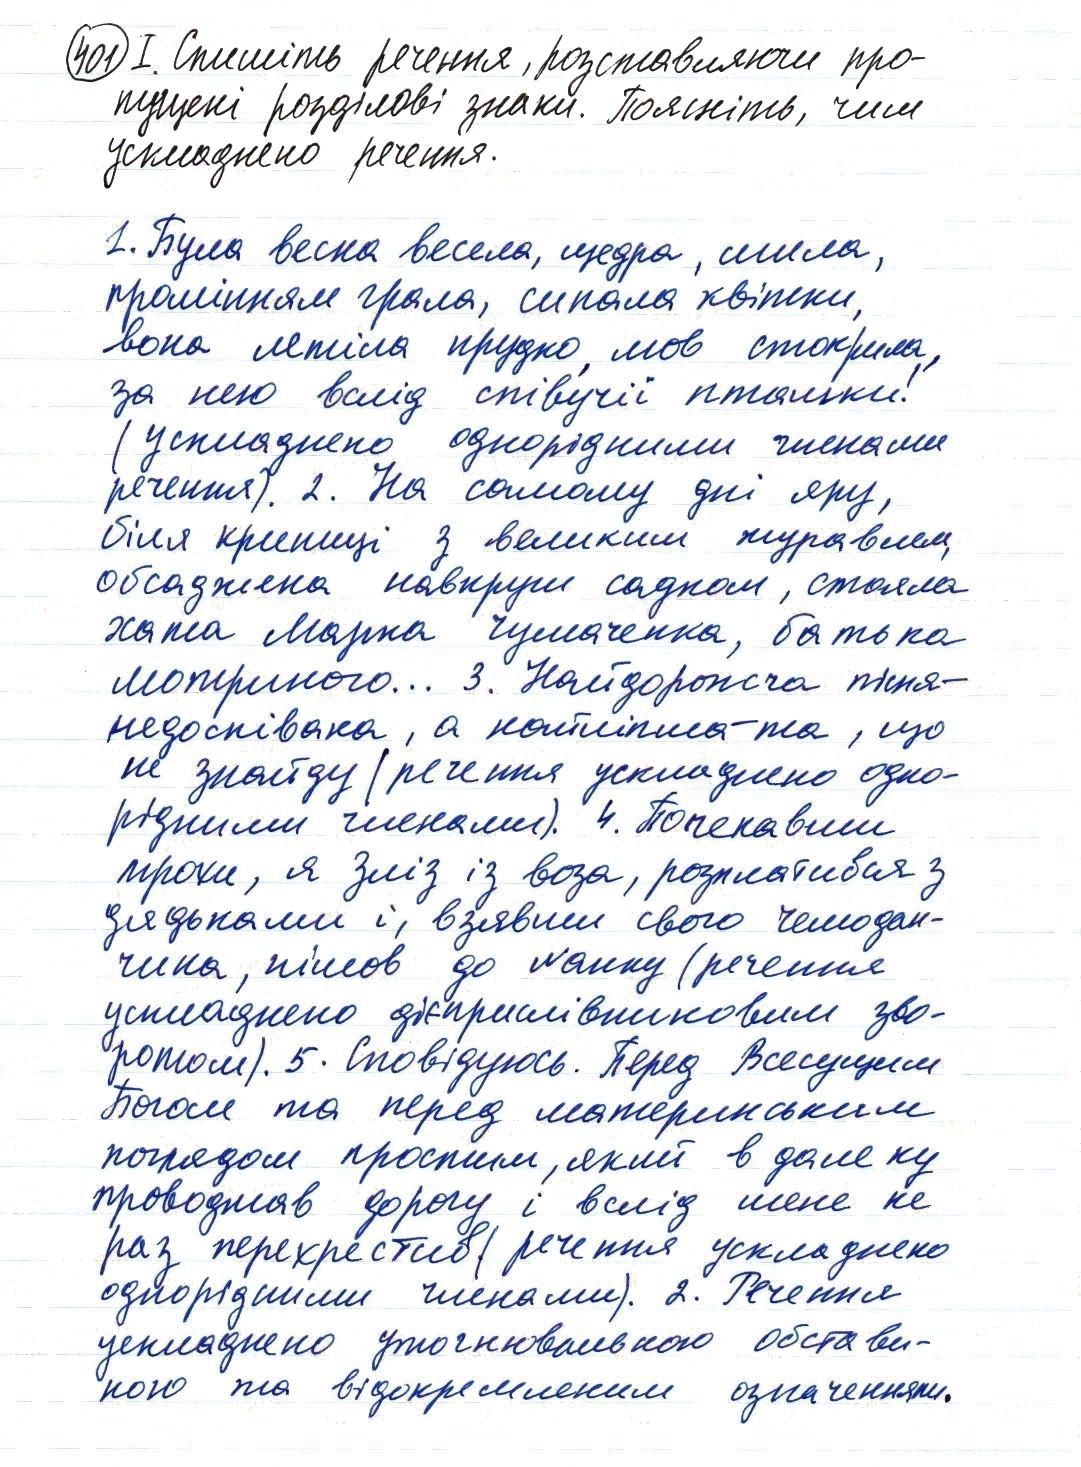 401 I. Спишіть речення, розставляючи про-
пущені розділові знаки. Поясніть, чим
ускладнено речення.
1. Була весна весела, щедра, мила,
промінням грала, сипала квітки,
вона летіла прудко, мов стокрила,
за нею вслід співучії пташки!
(ускладнено однорідними членами
речення). 2. На самому дні яру,
біля криниці з великим журавлем,
обсаджена навкруги садком, стояла
хата Марка Чумаченка, батька
материного... 3. Найдорожча пісня-
недоспівана, а найліпша-та, що
не знайду (речення ускладнено одно-
рідними членами). 4. Почекавши
трохи, я зліз із воза, розплатився з
дядьками і, взявши свого чемодан-
чика, пішов до ганку (речення
ускладнено дієприслівниковим зво-
ротом). 5. Сповідуюсь. Перед Всесущим
Богом та перед материнським
поглядом простим, який в далеку
проводжав дорогу і вслід мене не
раз перехрестив (речення ускладнено
однорідними членами). 2. Речення
ускладнено уточнювальною обстави-
ною та відокремленим означенням.